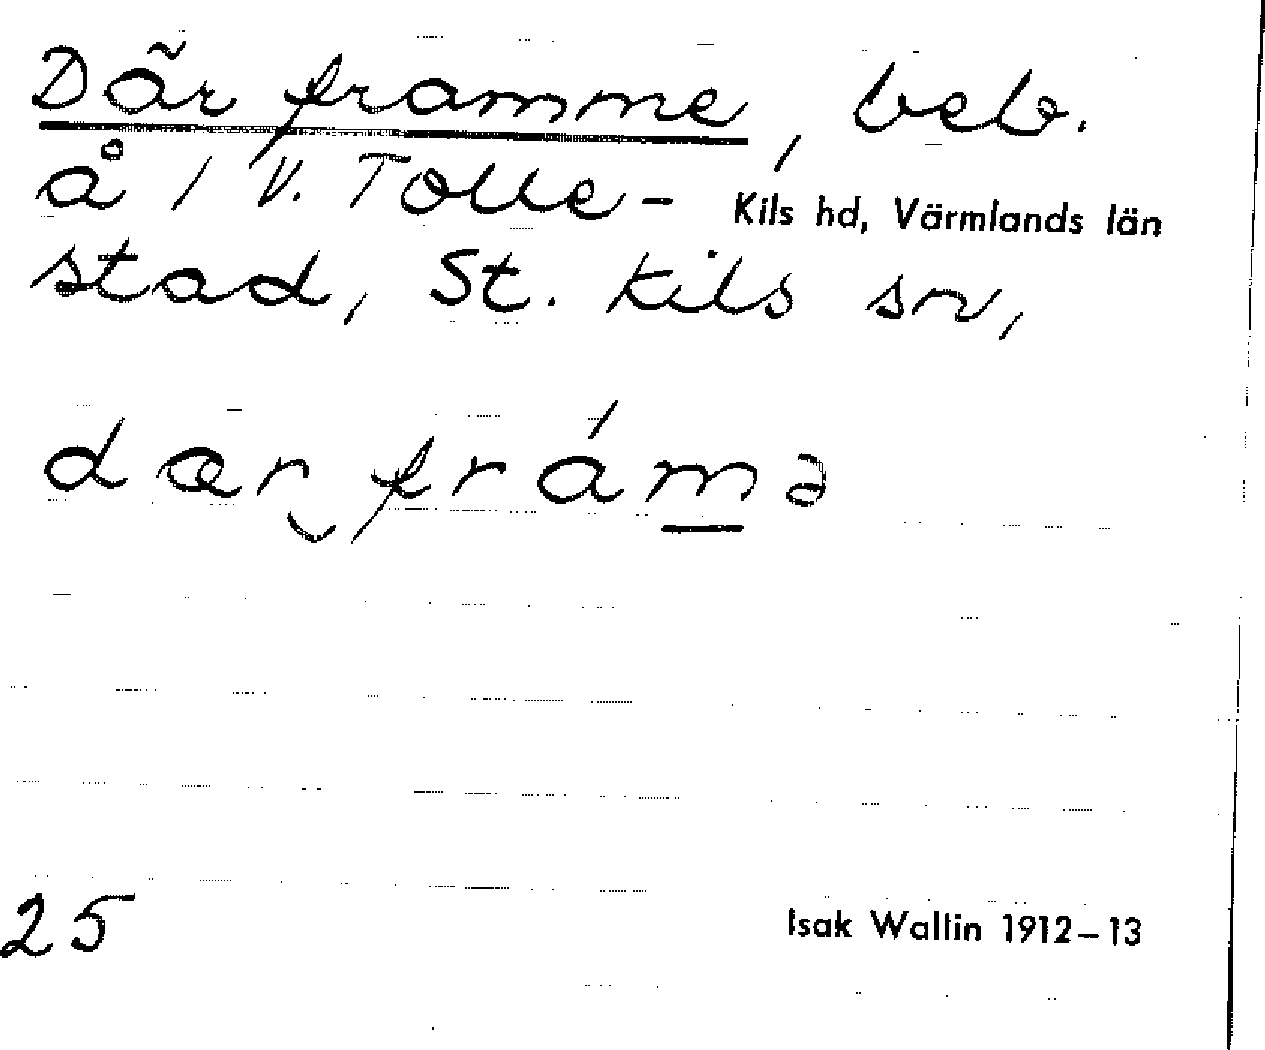 Där framme, beb.
å 1 V. Tolle-
Kils hd, Värmlands län
stad, St. Kils sn,
dær‿fráma
25
Isak Wallin 1912–13